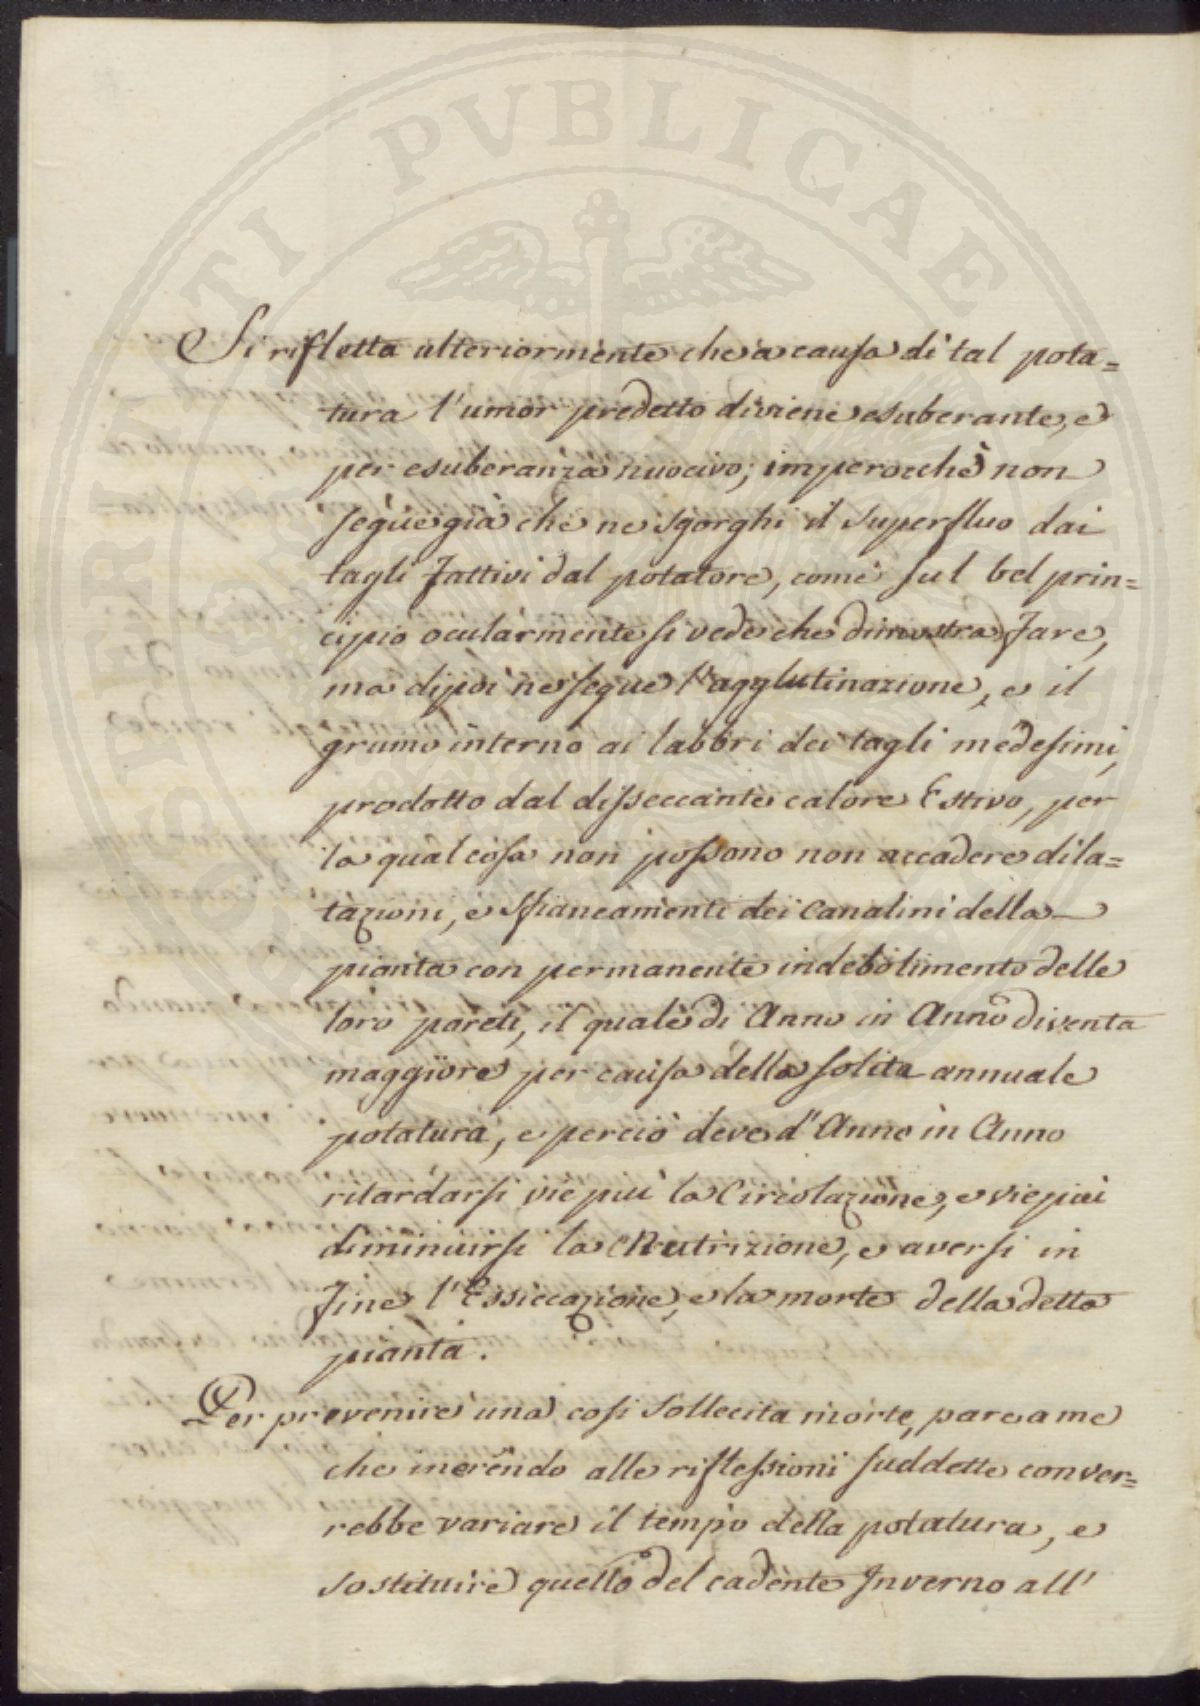 PROSPERITATI PVBLICAE
Si rifletta ulteriormente che a causa di tal pota=
tura l'umor predetto diviene esuberante, e
per esuberanza nuocivo; imperocchè non
segue già che ne sgorghi il superfluo dai
tagli fattivi dal potatore, come sul bel prin=
cipio ocularmente si vede che dimostra fare,
ma dipoi ne segue l'agglutinazione, e il
grumo interno ai labbri dei tagli medesimi,
prodotto dal disseccante calore Estivo, per
la qual cosa non possono non accadere dila=
tazioni, e spianeamenti dei Canalini della
pianta con permanente indebolimento delle
loro pareti, il quale di Anno in Anno diventa
maggiore per causa della solita annuale
potatura, e perciò deve d'Anno in Anno
ritardarsi vie più la Circolazione, e vie più
diminuirsi la Nutrizione, e aversi in
fine l'Essiccazione, e la morte della detta
pianta.
Per prevenire una così sollecita morte, pare a me
che inerendo alle riflessioni suddette conver=
rebbe variare il tempo della potatura, e
sostituire quello del cadente Inverno all'